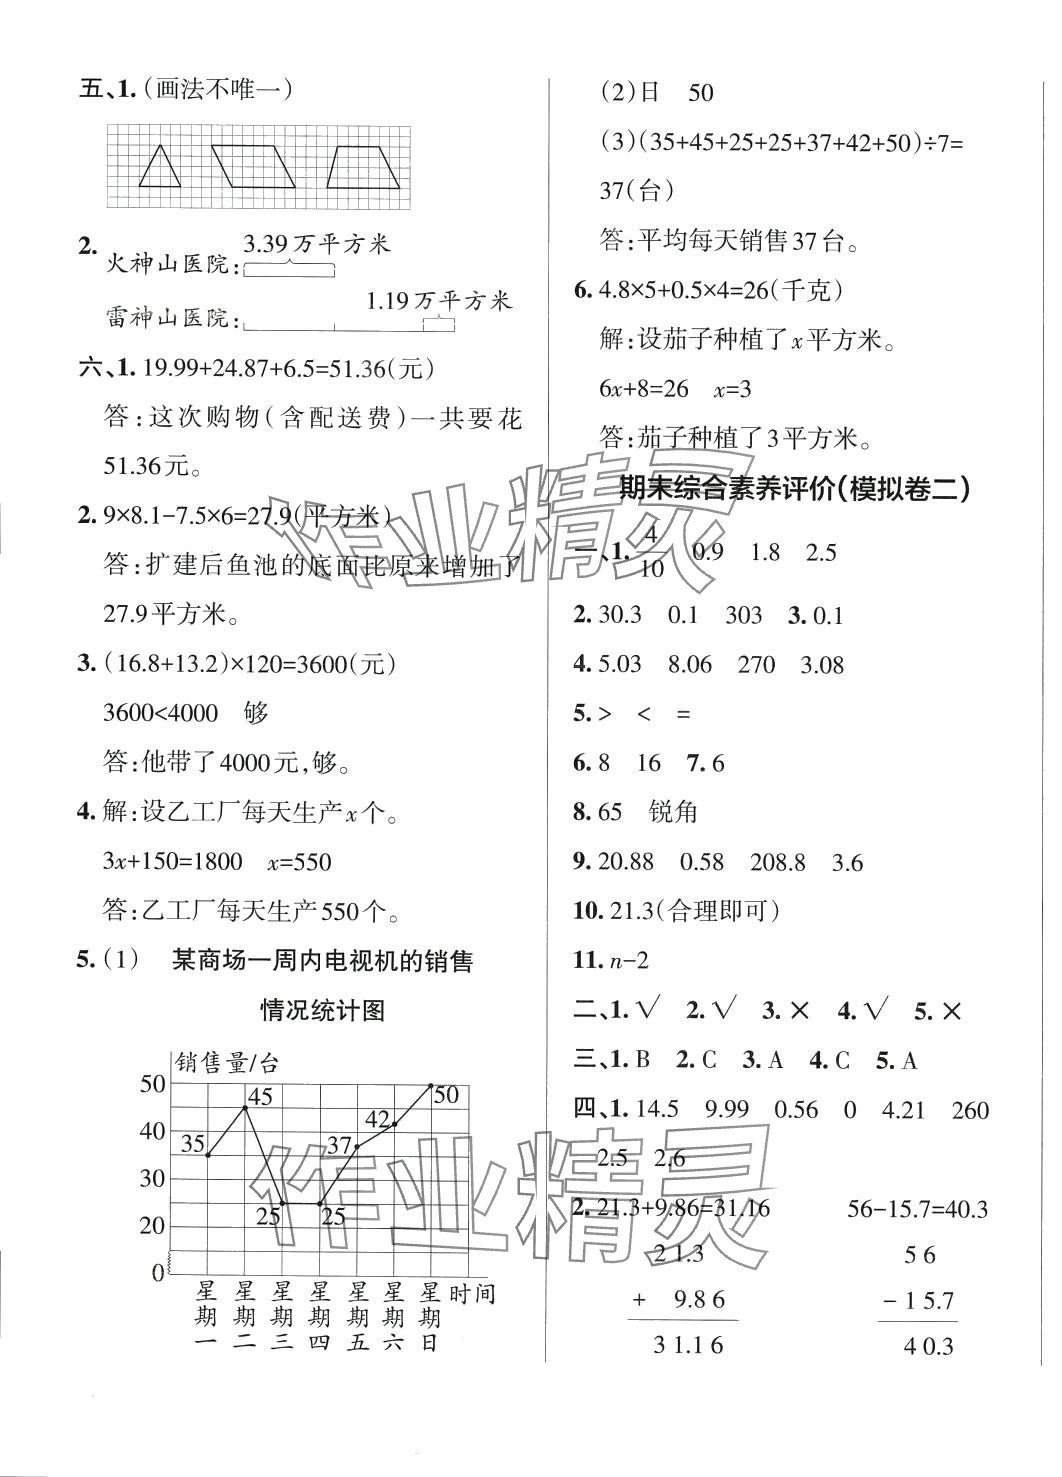 五、1.(画法不唯一)
2.
3.39万平方米
火神山医院:
1.19万平方米
雷神山医院:
六、1. 19.99+24.87+6.5=51.36(元)
答:这次购物(含配送费)一共要花
51.36元。
2. 9×8.1-7.5×6=27.9(平方米)
答:扩建后鱼池的底面比原来增加了
27.9平方米。
3. (16.8+13.2)×120=3600(元)
3600<4000 够
答:他带了4000元,够。
4. 解:设乙工厂每天生产x个。
3x+150=1800 x=550
答:乙工厂每天生产550个。
5. (1) 某商场一周内电视机的销售
情况统计图
销售量/台
50
40
30
20
0
35
45
25
25
37
42
50
星期一 星期二 星期三 星期四 星期五 星期六 星期日 时间
(2)日 50
(3)(35+45+25+25+37+42+50)÷7=
37(台)
答:平均每天销售37台。
6. 4.8×5+0.5×4=26(千克)
解:设茄子种植了x平方米。
6x+8=26 x=3
答:茄子种植了3平方米。
期末综合素养评价(模拟卷二)
一、1. 4/10 0.9 1.8 2.5
2. 30.3 0.1 303 3. 0.1
4. 5.03 8.06 270 3.08
5. > < =
6. 8 16 7. 6
8. 65 锐角
9. 20.88 0.58 208.8 3.6
10. 21.3(合理即可)
11. n-2
二、1. √ 2. √ 3. × 4. √ 5. ×
三、1. B 2. C 3. A 4. C 5. A
四、1. 14.5 9.99 0.56 0 4.21 260
2.5 2.6
2. 21.3+9.86=31.16 56-15.7=40.3
21.3 56
+ 9.86 -15.7
31.16 40.3
作业精灵
作业精灵